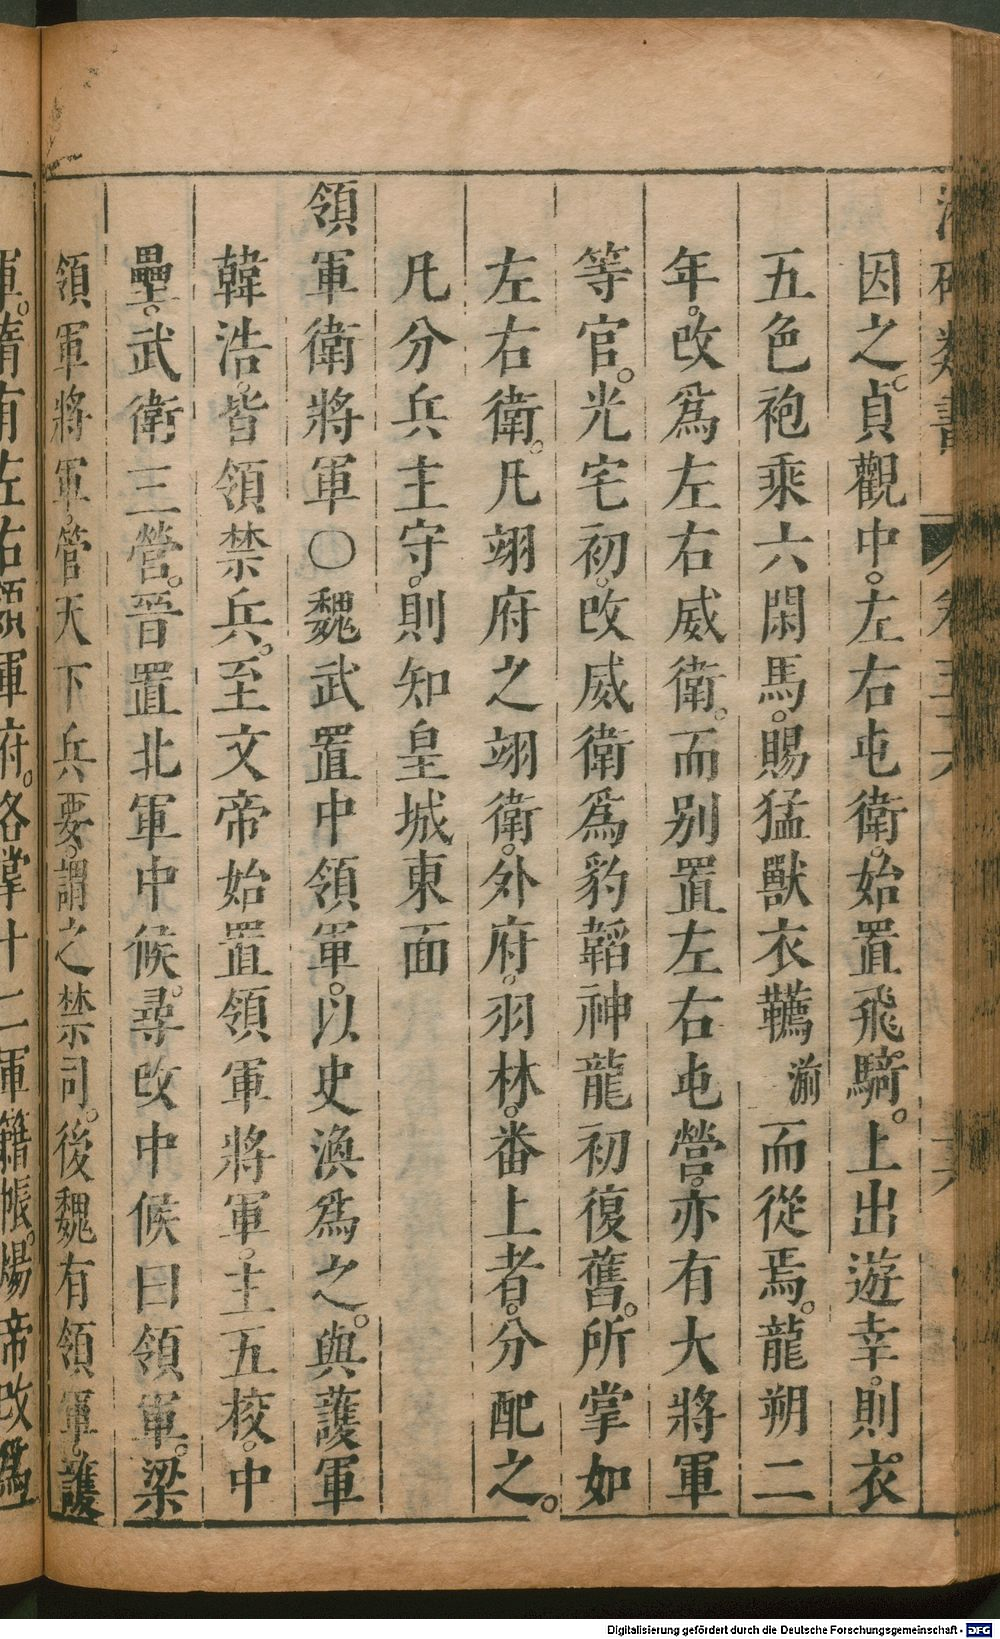 因之。貞觀中。左右屯衛。始置飛騎。上出遊幸。則衣
五色袍乘六閑馬。賜猛獸衣韉湔而從焉。龍朔二
年。改爲左右威衛。而别置左右屯營。亦有大將軍
等官。光宅初。改威衛爲豹韜神龍初復舊。所掌如
左右衛。凡翊府之翊衛。外府。羽林。番上者。分配之。
凡分兵主守。則知皇城東面
領軍衛將軍○魏武置中領軍。以史渙爲之。與護軍
韓浩。皆領禁兵。至文帝始置領軍將軍。主五校。中
壘。武衛三營。晉置北軍中候。尋改中候曰領軍。梁
領軍將軍。管天下兵要。謂之禁司。後魏有領軍。護
軍。隋有左右領軍府。各掌十二軍籍帳。煬帝改爲
Digitalisierung gefördert durch die Deutsche Forschungsgemeinschaft - DFG